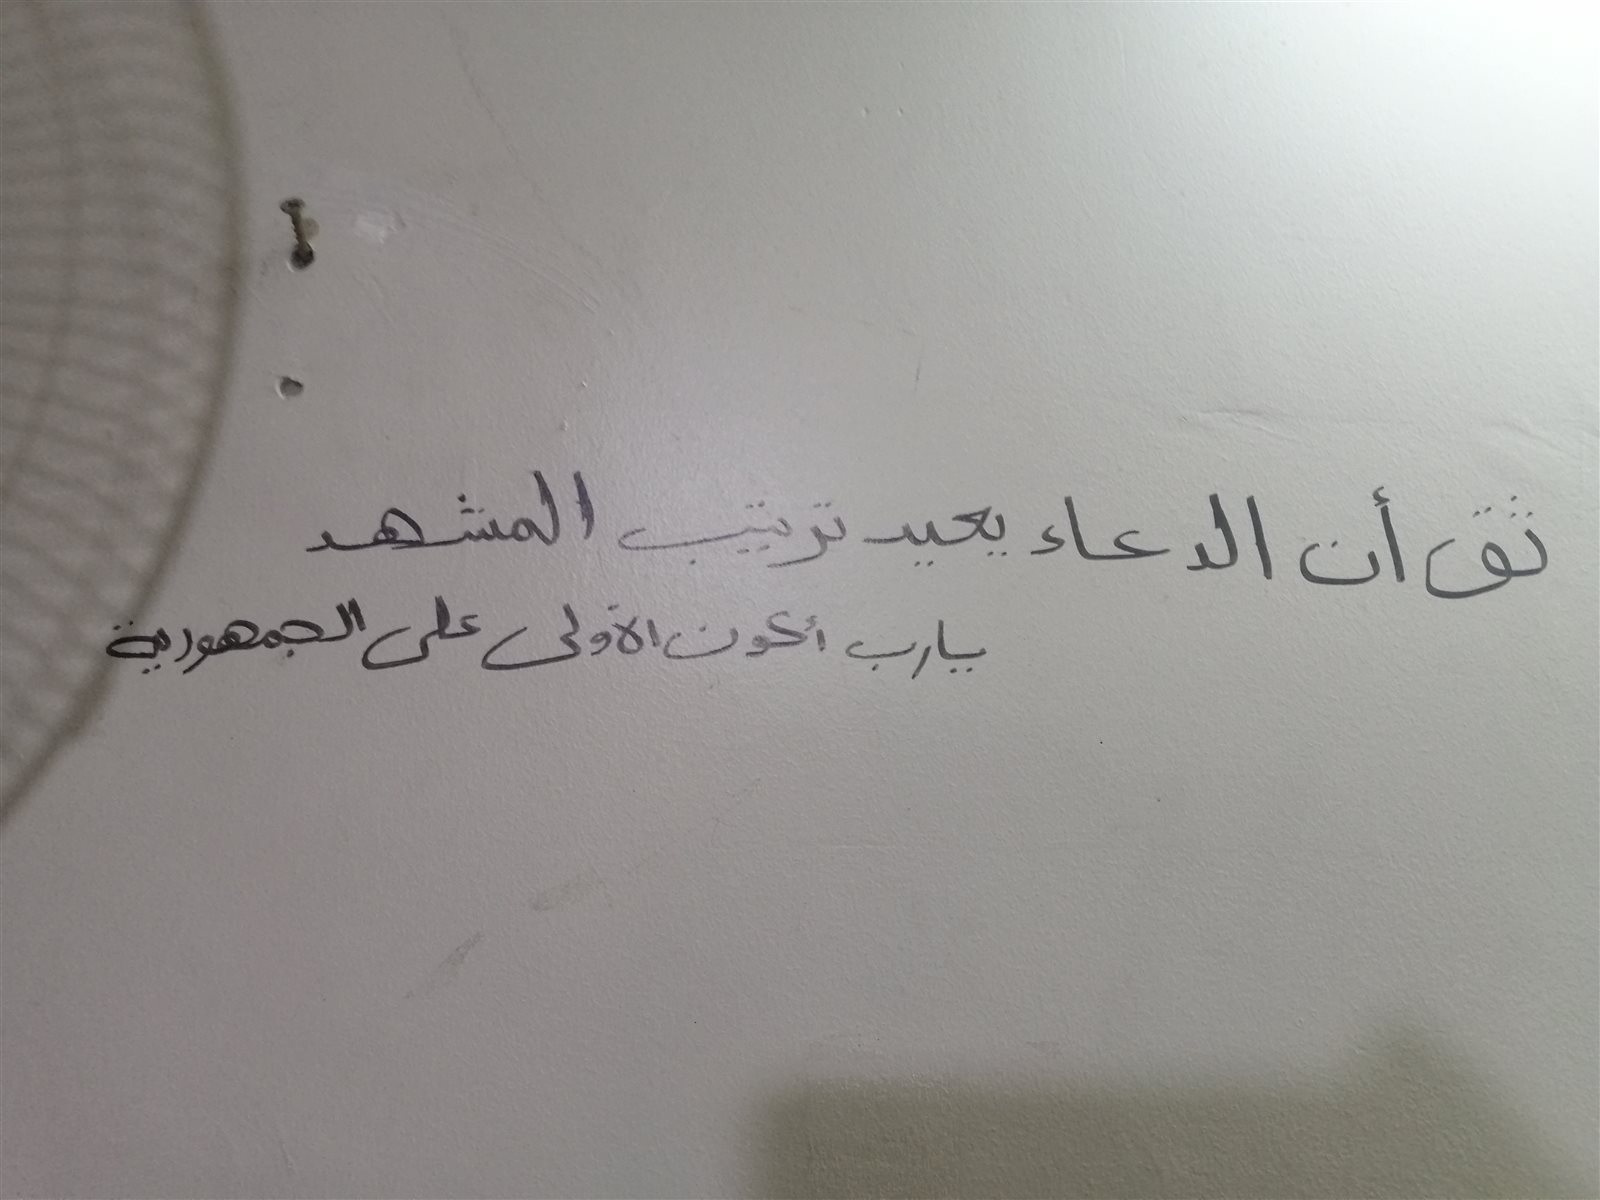 ثق أن الدعاء يعيد ترتيب المشهد
يارب أكون الأولى على الجمهورية